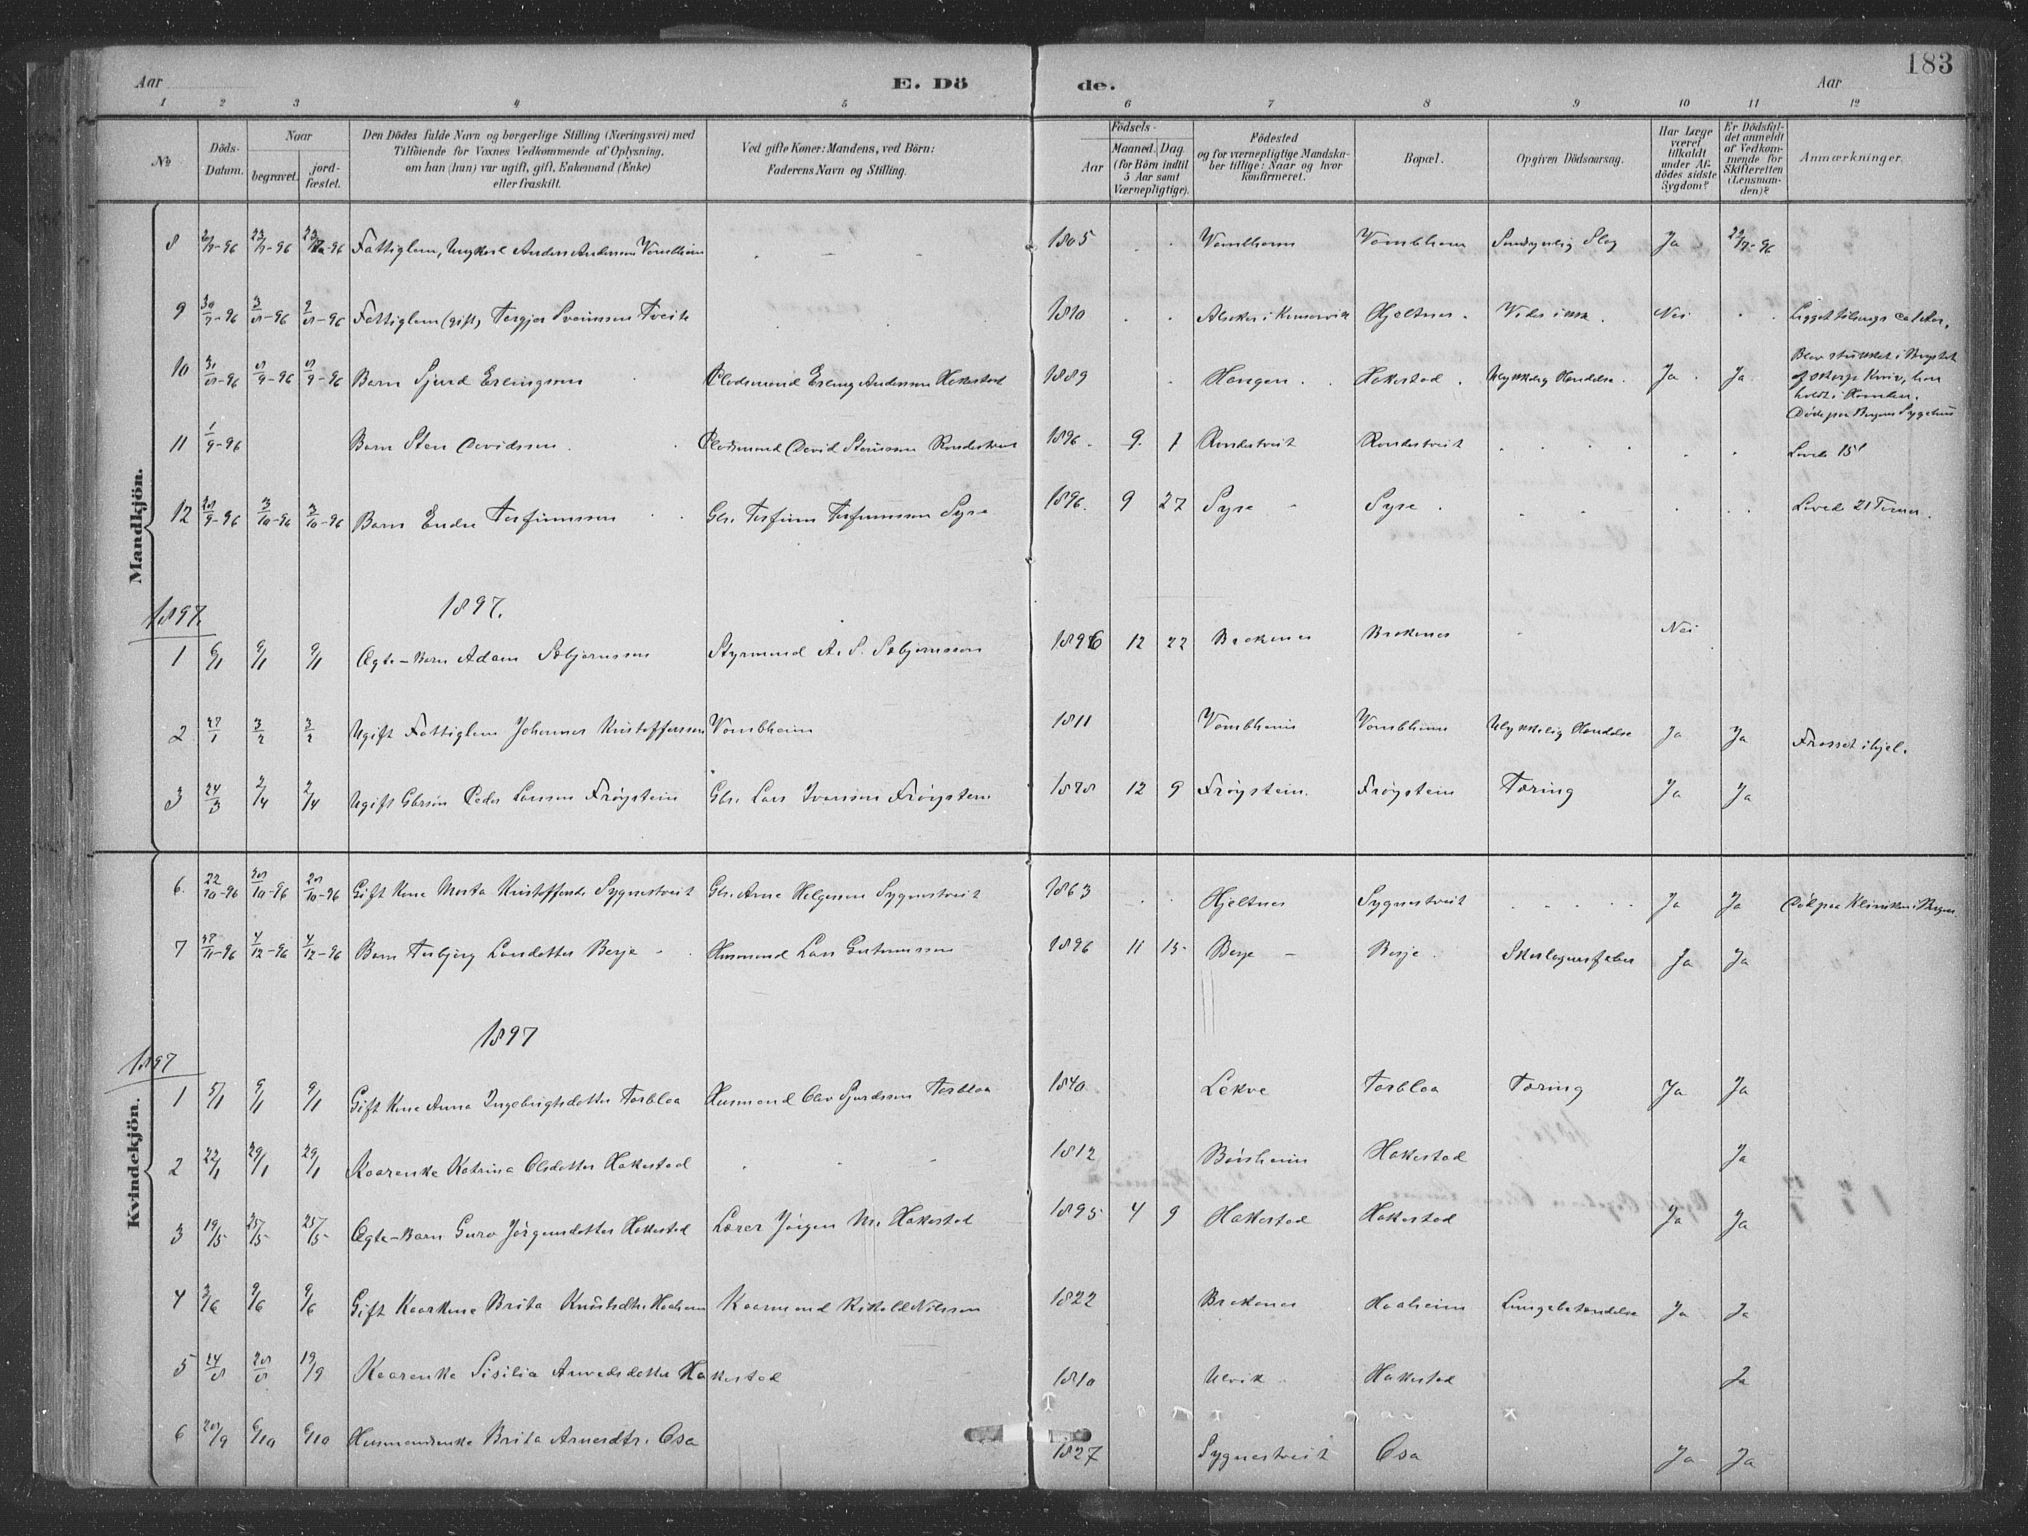 183
Aar E. Dö de. Aar
1 2 3 4 5 6 7 8 9 10 11 12
No
Döds-Datum.
Naar
begravet.
jord-fæstet.
Den Dödes fulde Navn og borgerlige Stilling (Næringsvei) med
Tilföiende for Voxnes Vedkommende af Oplysning,
om han (hun) var ugift, gift, Enkemand (Enke)
eller fraskilt.
Ved gifte Koner: Mandens, ved Börn:
Faderens Navn og Stilling.
Födsels-
Aar
Maaned. Dag.
(for Börn indtil
5 Aar samt
Værnepligtige).
Födested
og for værnepligtige Mandska-
ber tillige: Naar og hvor
konfirmeret.
Bopæl.
Opgiven Dödsaarsag.
Har Læge
været
tilkaldt
under Af-
dödes sidste
Sygdom?
Er Dödsfal-
det anmeldt
af Vedkom-
mende for
Skifteretten
(Lensman-
den)?
Anmærkninger.
Mandkjön.
8 -96 23/7-96 -96 Fattiglem, Ungkarl Anders Andersen Vambheim 1805 Vambheim Vambheim Slag Ja 22/7-96
9 30/7-96 3/8-96 2/8-96 Fattiglem (gift) Torgjer Sveinssen Tveit 1810 Alsaker i Kinservik Hjeltnes Nei
10 31/8-96 8/9-96 8/9-96 Barn Sjurd Erlingssen Plodsmand Erling Anderssen Hakestad 1889 Hangen Hakestad Ulykkelig Hændelse. Ja Ja Blev stukket i Brystet
af skarp Kniv, han
holdt i Haanden.
Döde paa Bergens Sygehus
11 1/9-96 Barn Sten Davidssen Plodsmand David Steinssen 1896 9 1 Levede 15'
12 28/9-96 3/10-96 3/10-96 Barn Endre Torfinnssen Gbr. Torfinn Torfinnssen Syse 1896 9 27 Syse Syse Levede 21 Timer.
1897. 1897.
1 6/1 9/1 9/1 Ægte-Barn Adam Asbjørnssen Styrmand A. S. Asbjørnssen 1896 12 22 Brakenes Brakenes Nei
2 27/1 3/2 3/2 Ugift Fattiglem Johannes Kristoffersen Vambheim 1811 Vambheim Vambheim Ulykkelig Hændelse Ja Ja Frosset ihjel.
3 24/3 2/4 2/4 Ugift Gbrsøn Peder Larssen Frøystein Gbr. Lars Iverssen Frøystein 1878 12 9 Frøystein Frøystein Tæring Ja Ja
Kvindekjön.
6. 22/10-96 28/10-96 28/10-96 Gift Kone Marta Kristoffersdr Sygnestveit Gbr. Arne Helgessen Sygnestveit 1863 Hjeltnes Sygnestveit Ja Ja Död paa Kliniken i Bergen
7 27/11-96 4/12-96 4/12-96 Barn Torbjørg Larsdatter Berje Husmand Lars 1896 11 15 Berje Berje Skarlagensfeber Ja Ja
1897 1897
1 5/1 9/1 9/1 Gift Kone Anna Ingebrigtsdatter Torblaa Husmand Olav Sjurdssen Torblaa 1840 Lekve Torblaa Tæring Ja Ja
2 22/1 29/1 29/1 Kaarenke Katrina Olsdatter Hakestad 1812 Hakestad Ja
3 19/5 25/5 25/5 Ægte-Barn Guro Jørgensdatter Hakestad Lærer Jørgen M. Hakestad 1895 4 9 Hakestad Hakestad Ja Ja
4 3/6 9/6 9/6 Gift Kaarkone Brita Knutsdtr Haaheim Kaarmand Nilssen 1822 Brakenes Haaheim Lungebetændelse Ja Ja
5 24/8 28/8 19/9 Kaarenke Sisilia Hakestad 1810 Ulvik Hakestad Ja
6 28/9 6/10 6/10 Husmandsenke Brita Osa 1827 Sygnestveit Osa Ja Ja